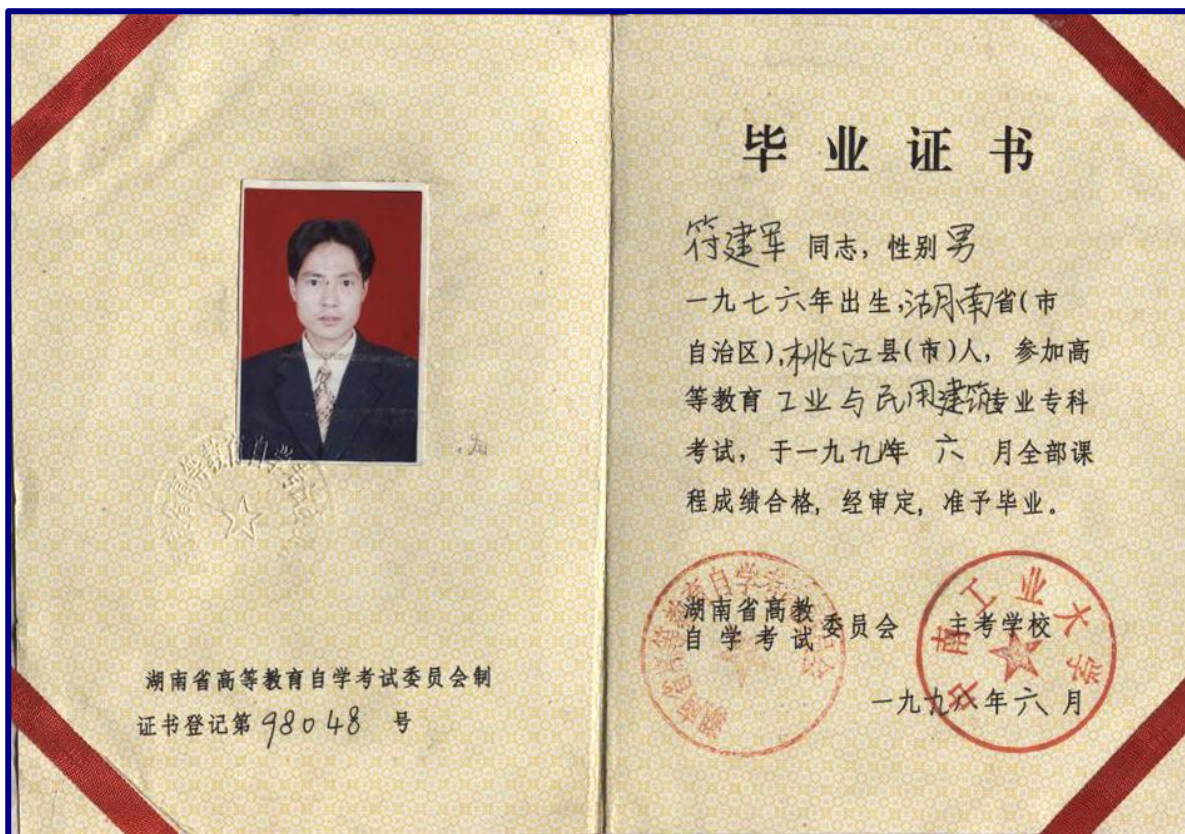 湖南省高等教育自学考试委员会制
证书登记第98048号
毕业证书
符建军同志，性别男
一九七六年出生，湖南省(市
自治区)，桃江县(市)人，参加高
等教育工业与民用建筑专业专科
考试，于一九九八年六月全部课
程成绩合格，经审定，准予毕业。
湖南省高教
自学考试委员会 主考学校
中南工业大学
一九九八年六月